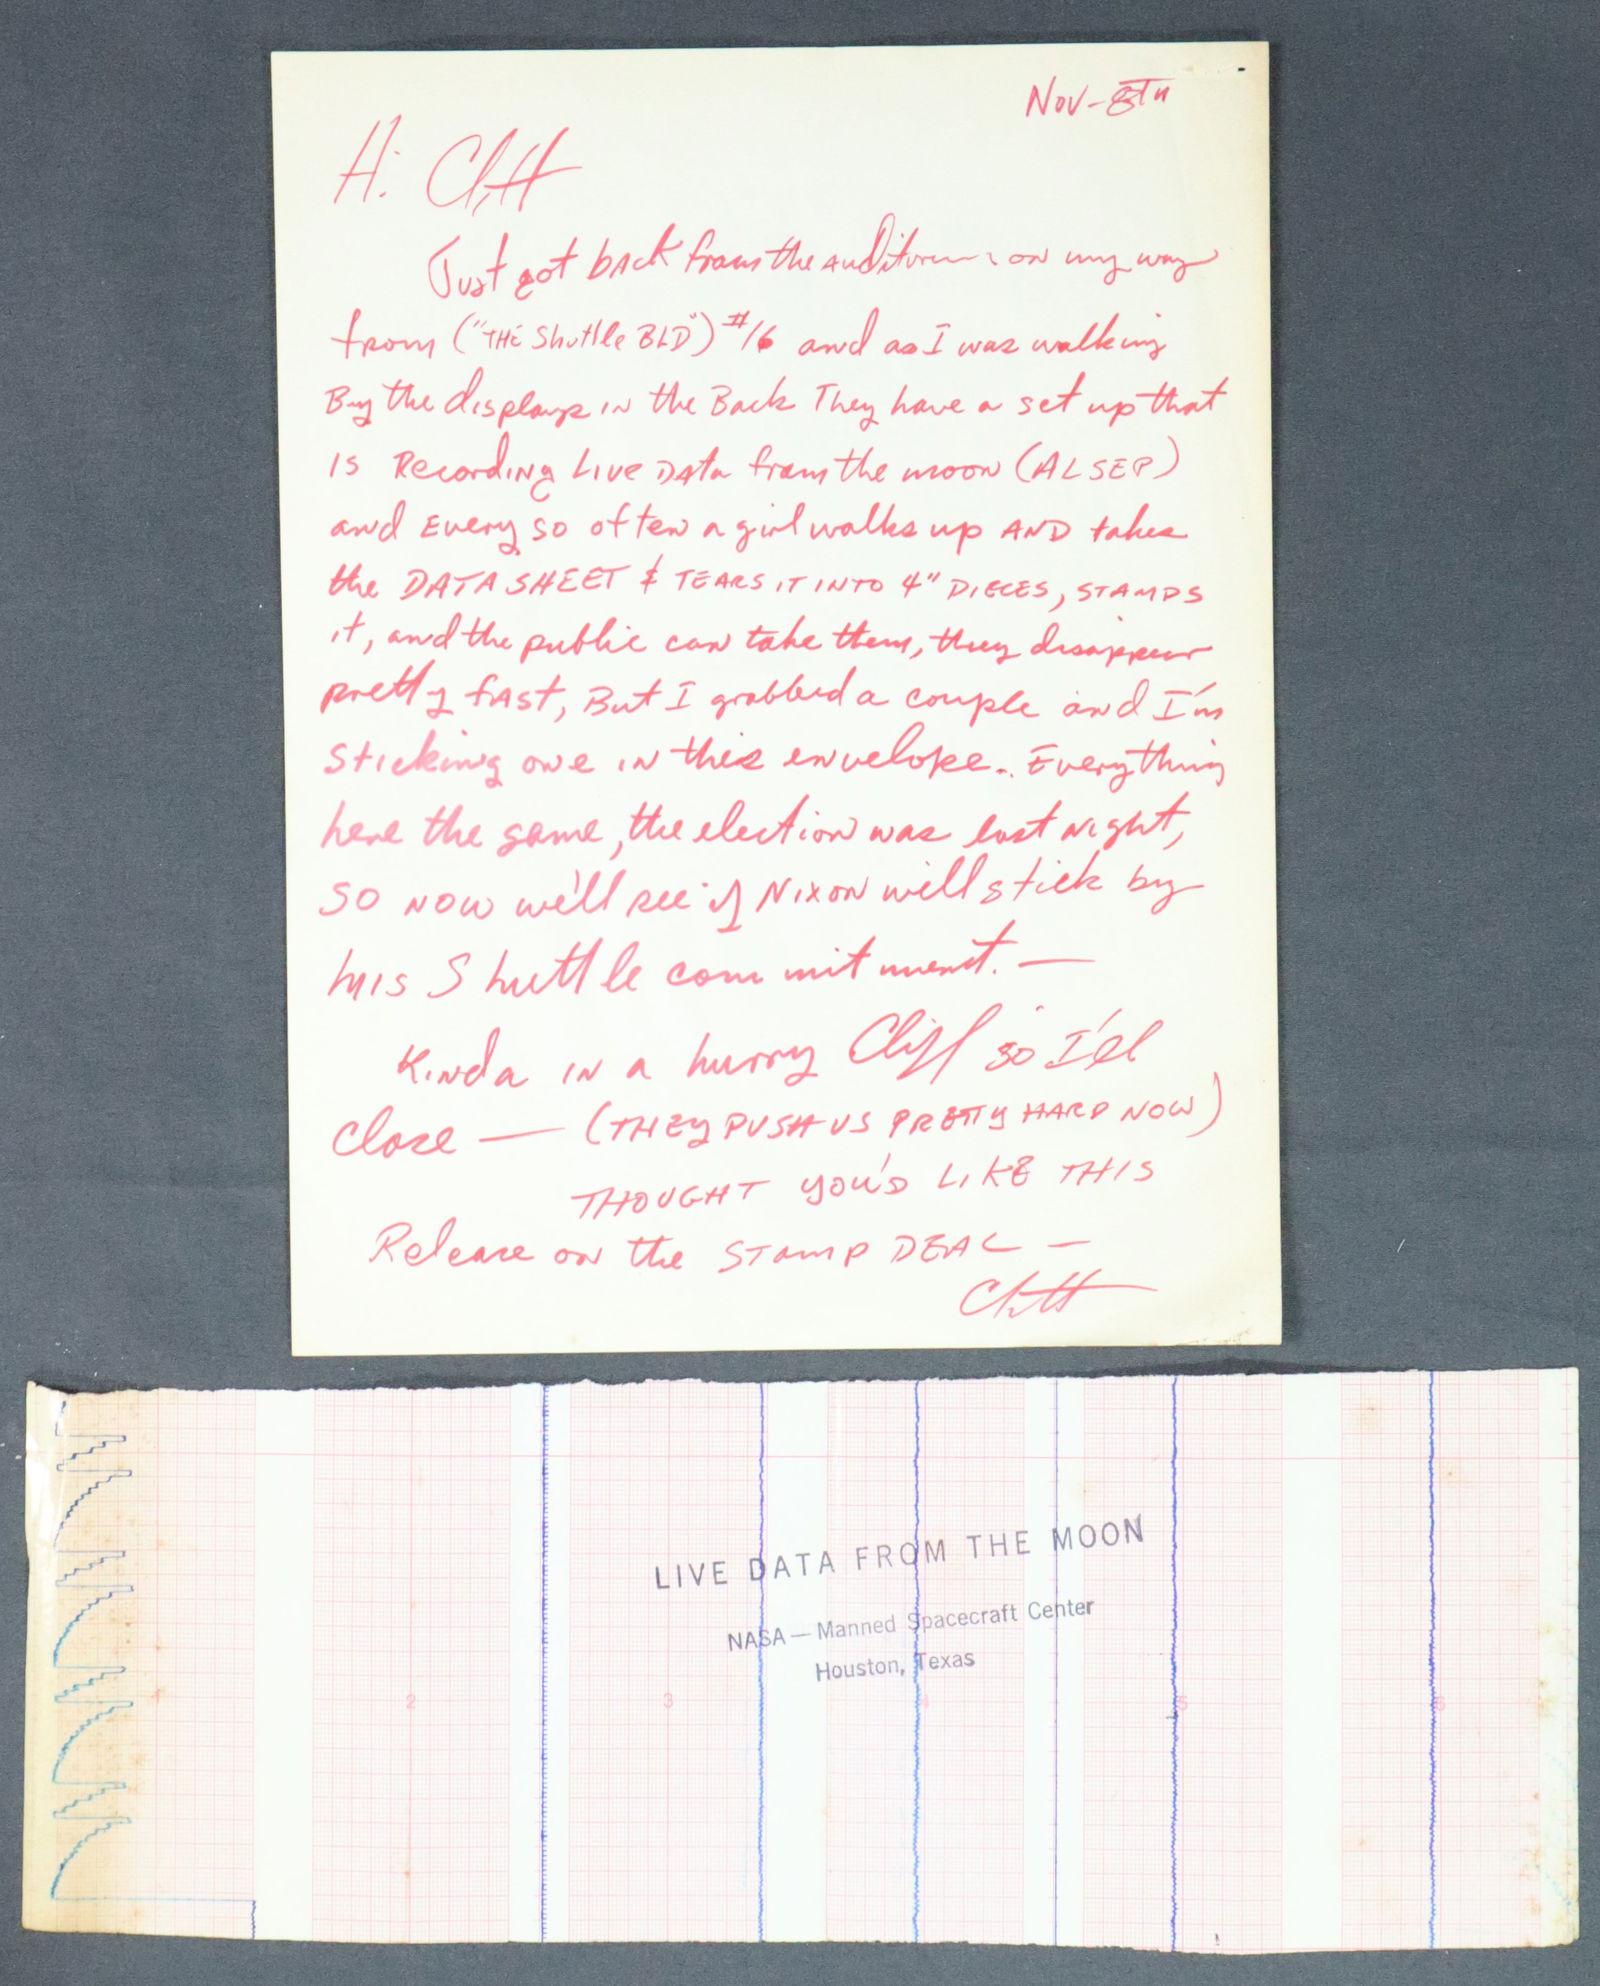 Nov-8TH
Hi Cliff
Just got back from the auditorium on my way
from ("THE Shuttle BLD") #16 and as I was walking
By the displays in the Back They have a set up that
is Recording Live Data from the moon (ALSEP)
and Every so often a girl walks up AND takes
the DATA SHEET & TEARS IT INTO 4" PIECES, STAMPS
it, and the public can take them, they disappear
pretty fast, But I grabbed a couple and I'm
sticking one in this envelope.. Everything
here the same, the election was last night,
so now we'll see if Nixon will stick by
his Shuttle commitment. —
Kinda in a hurry Cliff so I'll
close — (THEY PUSH US PRETTY HARD NOW)
THOUGHT YOU'D LIKE THIS
Release on the STAMP DEAL —
LIVE DATA FROM THE MOON
NASA — Manned Spacecraft Center
Houston, Texas
1 2 3 4 5 6